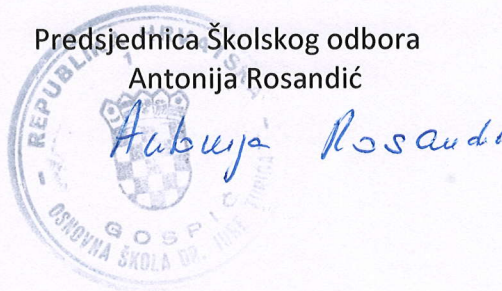 Predsjednica Školskog odbora
Antonija Rosandić
Antonija Rosandi
REPUBLIKA HRVATSKA
OSNOVNA ŠKOLA DR. JURE TURIĆA
GOSPIĆ